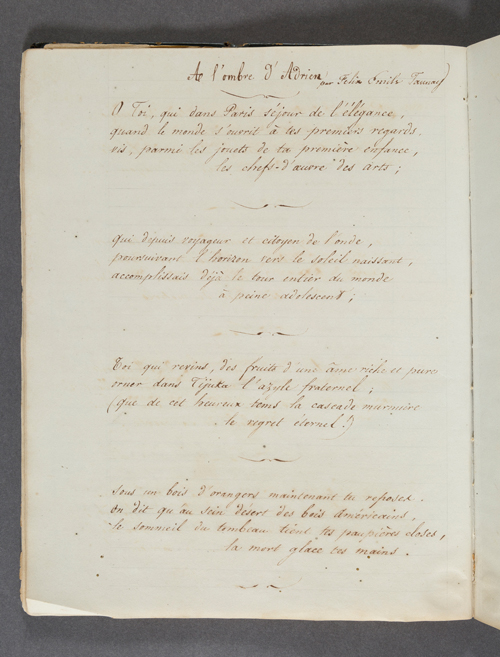 A l'ombre d'Adrien par Felix Emile Taunay
O Toi, qui dans Paris séjour de l'élégance,
quand le monde s'ouvrit à tes premiers regards,
vis, parmi les jouets de ta première enfance,
les chefs-d'œuvre des arts ;
qui depuis voyageur et citoyen de l'onde,
poursuivant l'horizon vers le soleil naissant,
accomplissais déjà le tour entier du monde
à peine adolescent ;
Toi qui revins, des fruits d'une âme riche et pure
orner dans Tijuka l'azyle fraternel ;
(que de cet heureux tems la cascade murmure
le regret éternel !)
sous un bois d'orangers maintenant tu reposes.
on dit qu'au sein désert des bois Américains,
le sommeil du tombeau tient tes paupières closes,
la mort glace tes mains.